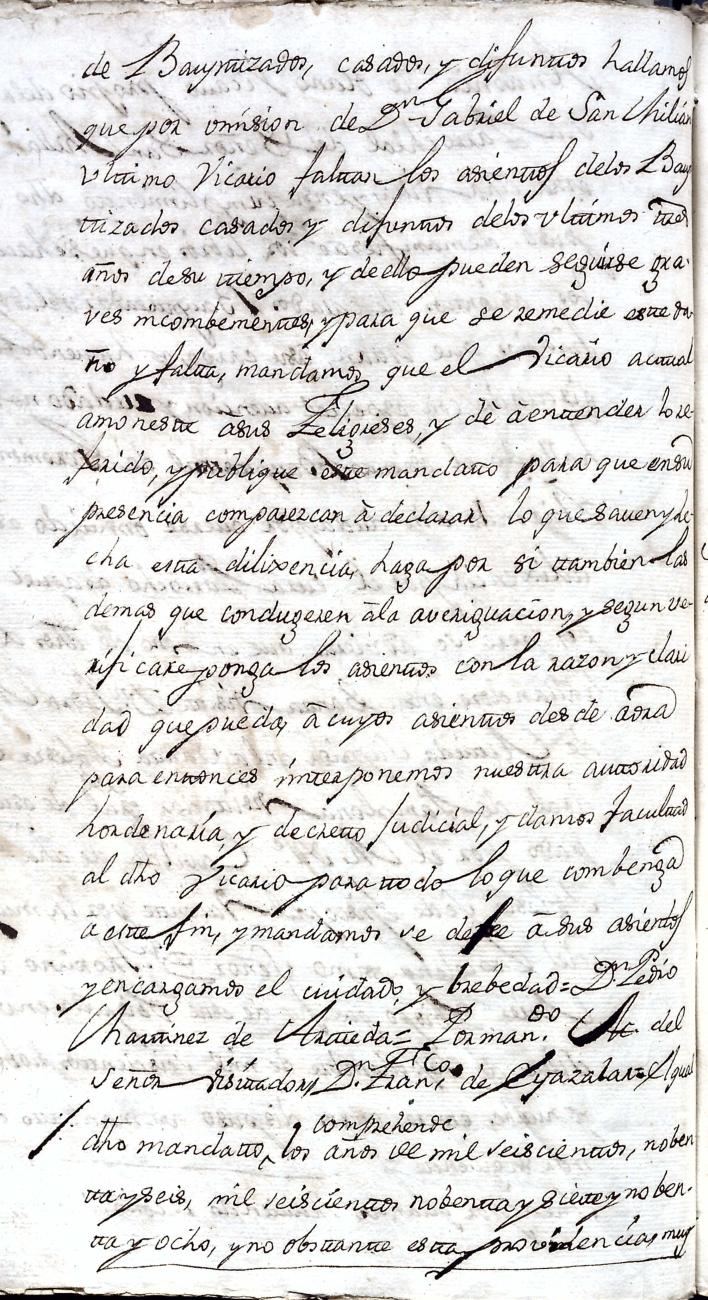 de Bayutizados, casados, y difuntos hallamos
que por omision de Dn Gabriel de San Millan
vltimo Vicario faltan los asientos delos Bay
tizados casados y difuntos delos vltimos tres
años desu tiempo, y dello pueden seguirse gra-
ves incombenientes, y para que se remedie este da-
ño y falta, mandamos que el Vicario actual
amoneste âsus Feligreses, y dè àentender lo re-
ferido, y publique este mandatto para que ensu
presencia comparezcan â declarar lo que saven y he-
cha esta dilixencia, haga por si tambien las
demas que condugeren âla averiguacion, y segun ve-
rificare ponga los asientos con la razon y clari
dad que pueda, â cuyos asientos desde aora
para entonces interponemos nuestra autoridad
hordenaria, y decretto Judicial, y damos facultad
al dho Vicario para ttodo lo que combenga
a este fin, y mandamos se de fee â sus asientos
y encargamos el cuidado, y brebedad= Dn Pedro
Martinez de Arnieda= Por mando. del
señor Visitador, Dn Franco. de El qual
comprehende
dho mandatto, los años de mil seiscientos, noben
ta y seis, mil seiscientos nobenta y siete y noben-
ta y ocho, y no obstante esta providencia, muy